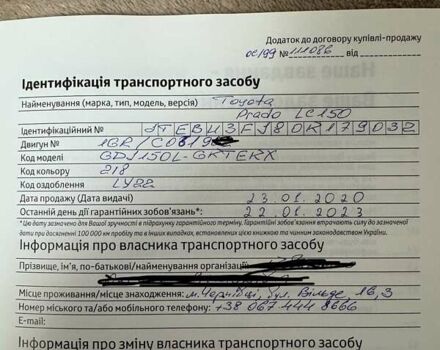 Додаток до договору купівлі-продажу
№ 111086 від
Ідентифікація транспортного засобу
Найменування (марка, тип, модель, версія) Toyota
Prado LC150
Ідентифікаційний № JTEBU3FJ80K179032
Двигун № 1GR/
Код моделі GDJ150L-GKTEKX
Код кольору 218
Код оздоблення LY22
Дата продажу (Дата видачі) 23.01.2020
Останній день дії гарантійних зобов'язань* 22.01.2023
* Цю дату зазначено для Вашої зручності в підрахунку гарантійного терміну. Гарантійні зобов'язання втрачають силу до зазначеної
дати при досягненні 100 000 км пробігу та в інших випадках, встановлених цією книжкою та чинним законодавством України.
Інформація про власника транспортного засобу
Прізвище, ім'я, по-батькові/найменування організації
Місце проживання/місце знаходження: м. Чернівці, вул. Вільде, 16,3
Номер міського та/або мобільного телефону: +38 067 444 8666
E-mail:
Інформація про зміну власника транспортного засобу